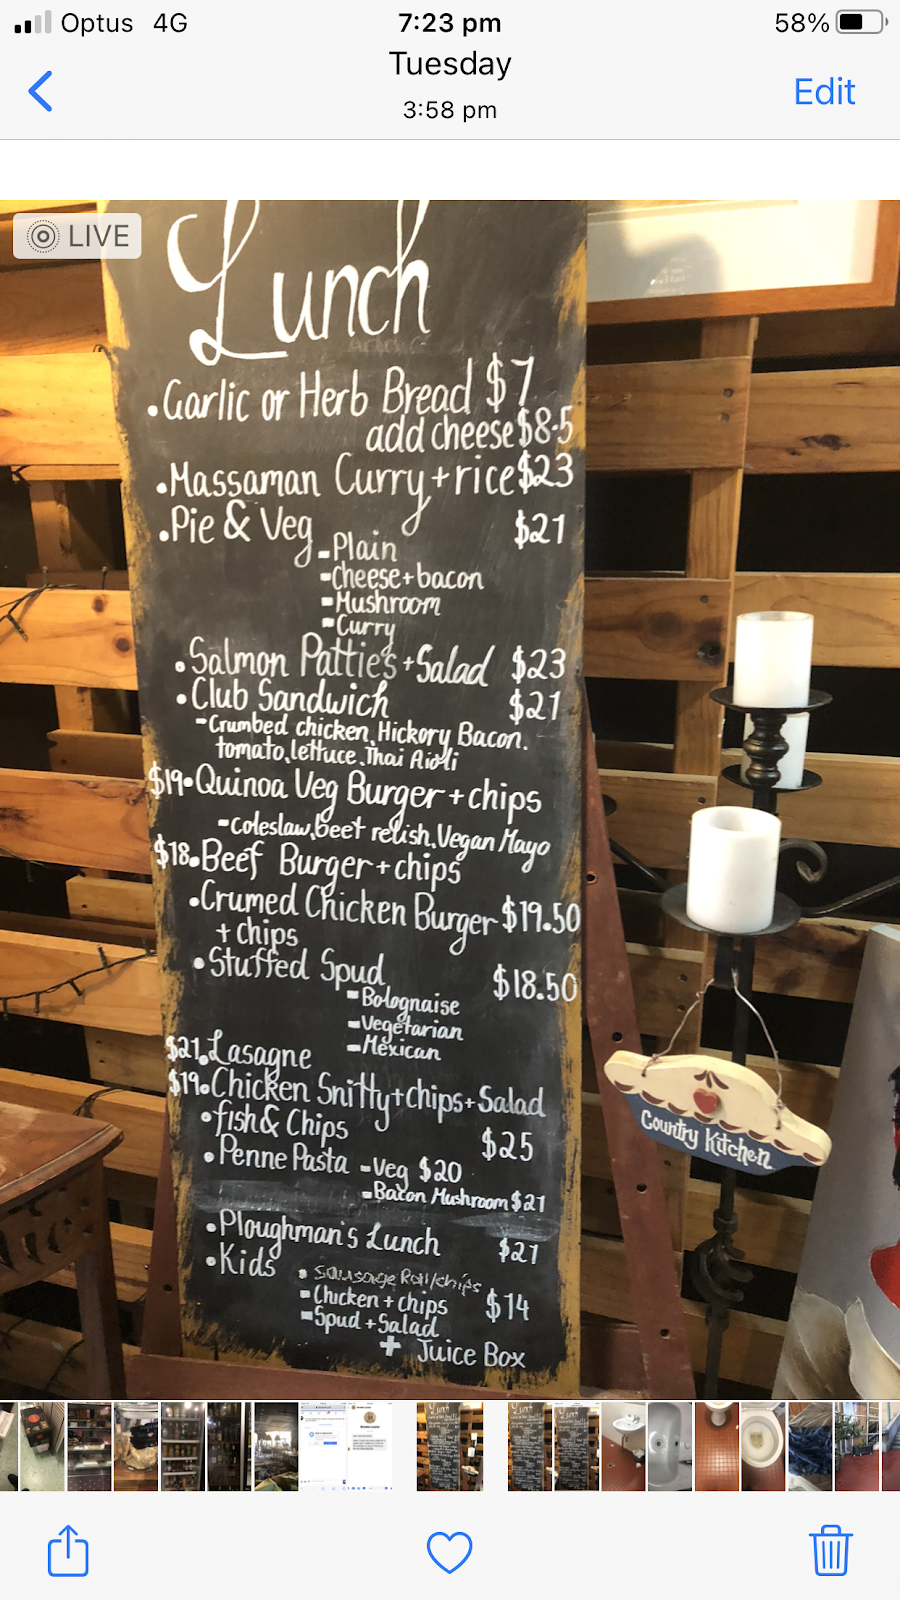 Optus 4G 7:23 pm 58%
Tuesday
3:58 pm
Edit
LIVE
Lunch
•Garlic or Herb Bread $7
add cheese $8.5
•Massaman Curry+rice $23
•Pie & Veg $21
-Plain
-Cheese+bacon
-Mushroom
-Curry
•Salmon Pattie's+Salad $23
•Club Sandwich $21
-Crumbed chicken, Hickory Bacon.
tomato, lettuce, Thai Aioli
$19•Quinoa Veg Burger+chips
-Coleslaw, beet relish, Vegan Mayo
$18•Beef Burger+chips
•Crumed Chicken Burger $19.50
+ chips
•Stuffed Spud $18.50
-Bolognaise
-Vegetarian
-Mexican
$21•Lasagne
$19•Chicken Snitty+chips+Salad
•fish& Chips $25
•Penne Pasta -Veg $20
-Bacon Mushroom $21
•Ploughman's Lunch $21
•Kids • Sausage Roll/chips
-Chicken + chips $14
-Spud + Salad
+ Juice Box
Country Kitchen